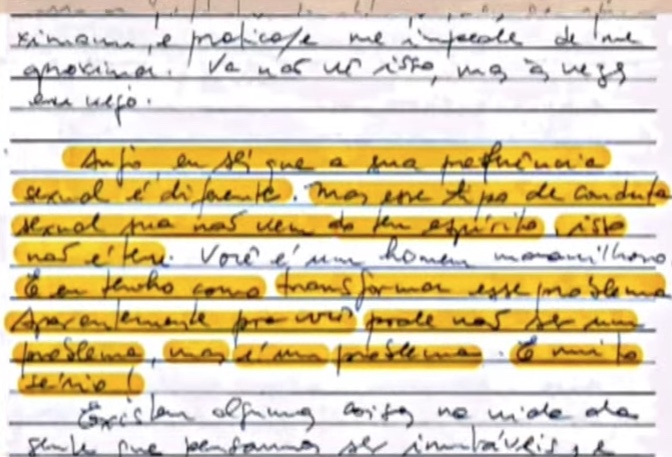 e me impede de me
aproximar. Vc não vê isso, mas às vezes
eu vejo.
Anjo, eu sei que a sua preferência
sexual é diferente. Mas esse tipo de conduta
sexual sua não vem do teu espírito, isto
não é teu. Você é um homem maravilhoso
E eu tenho como transformar esse problema
Aparentemente pra você pode não ser um
problema, mas é um problema. É muito
sério!
Existem algumas coisas na vida da
gente que pensamos ser imutáveis, e